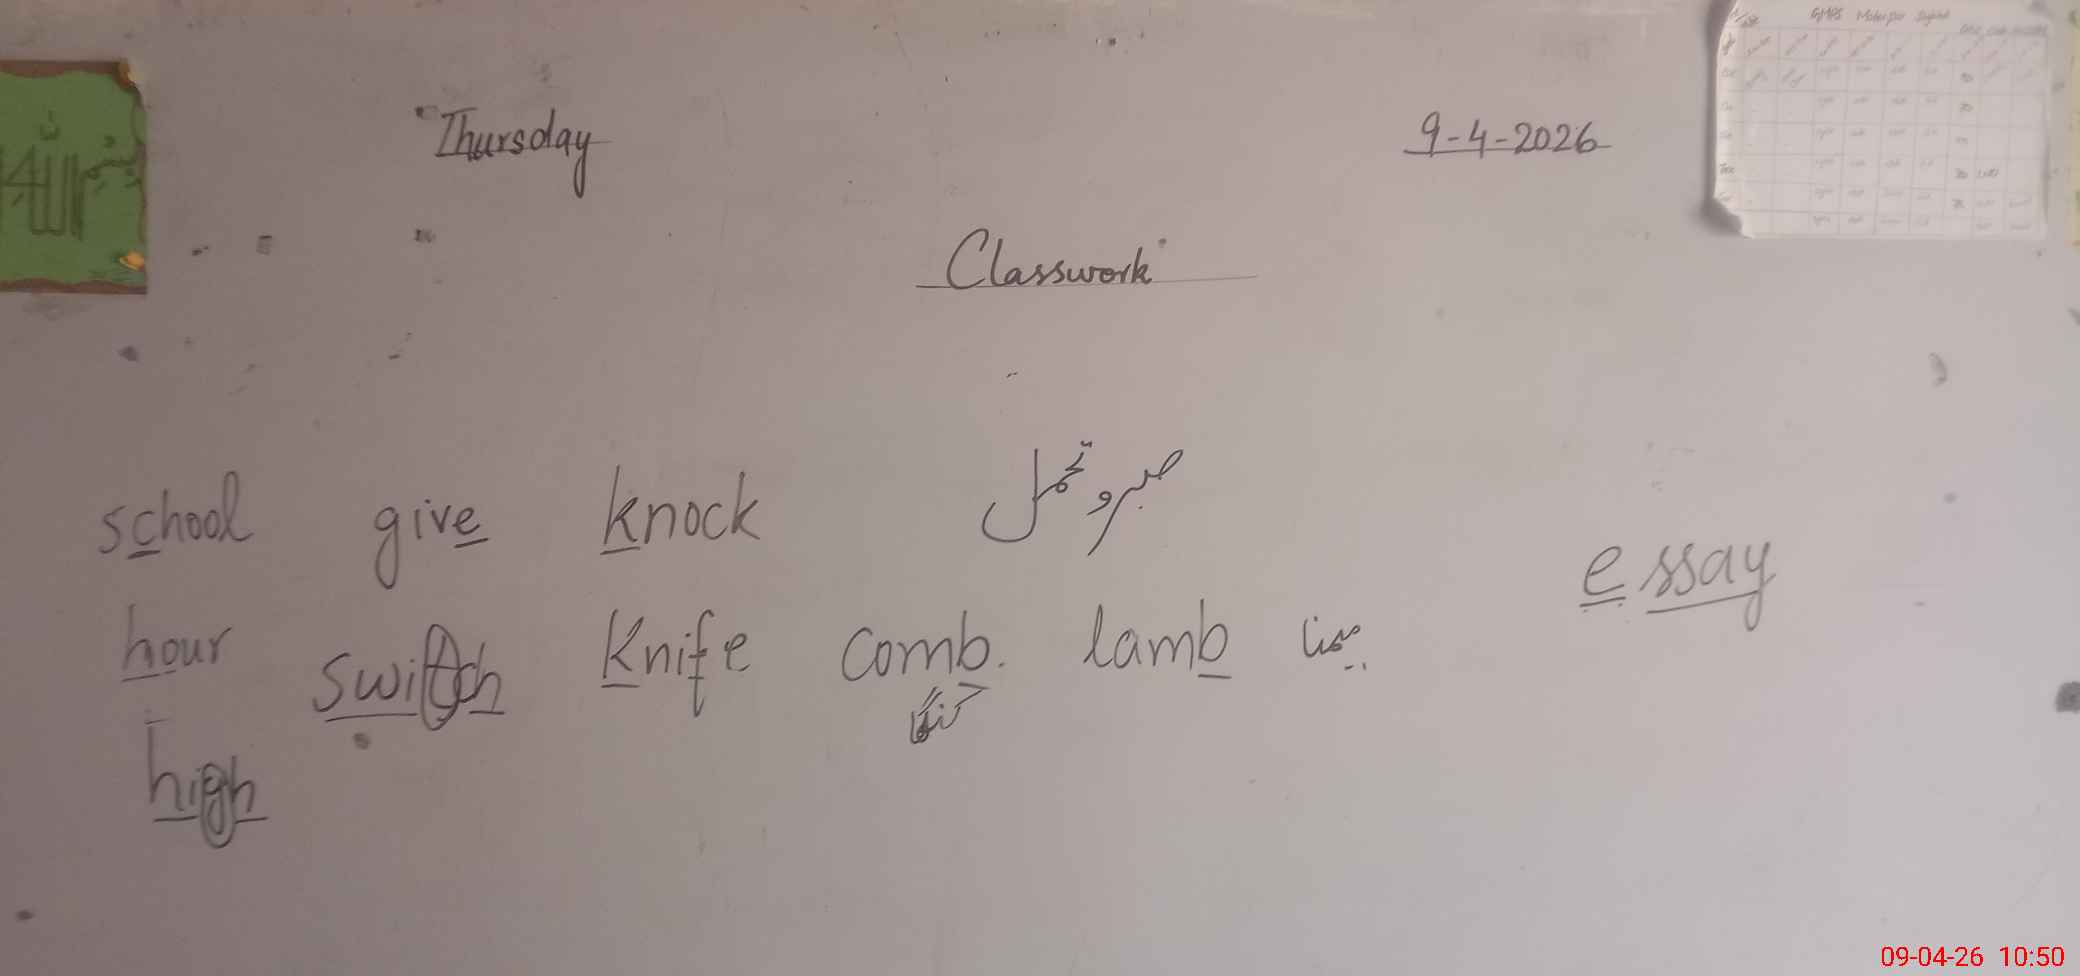 Thursday
9-4-2026
Classwork
school give knock صبر و تحمل
essay
hour switch Knife comb. lamb میمنا
کنگا
high
اللہ
GMPS
09-04-26 10:50